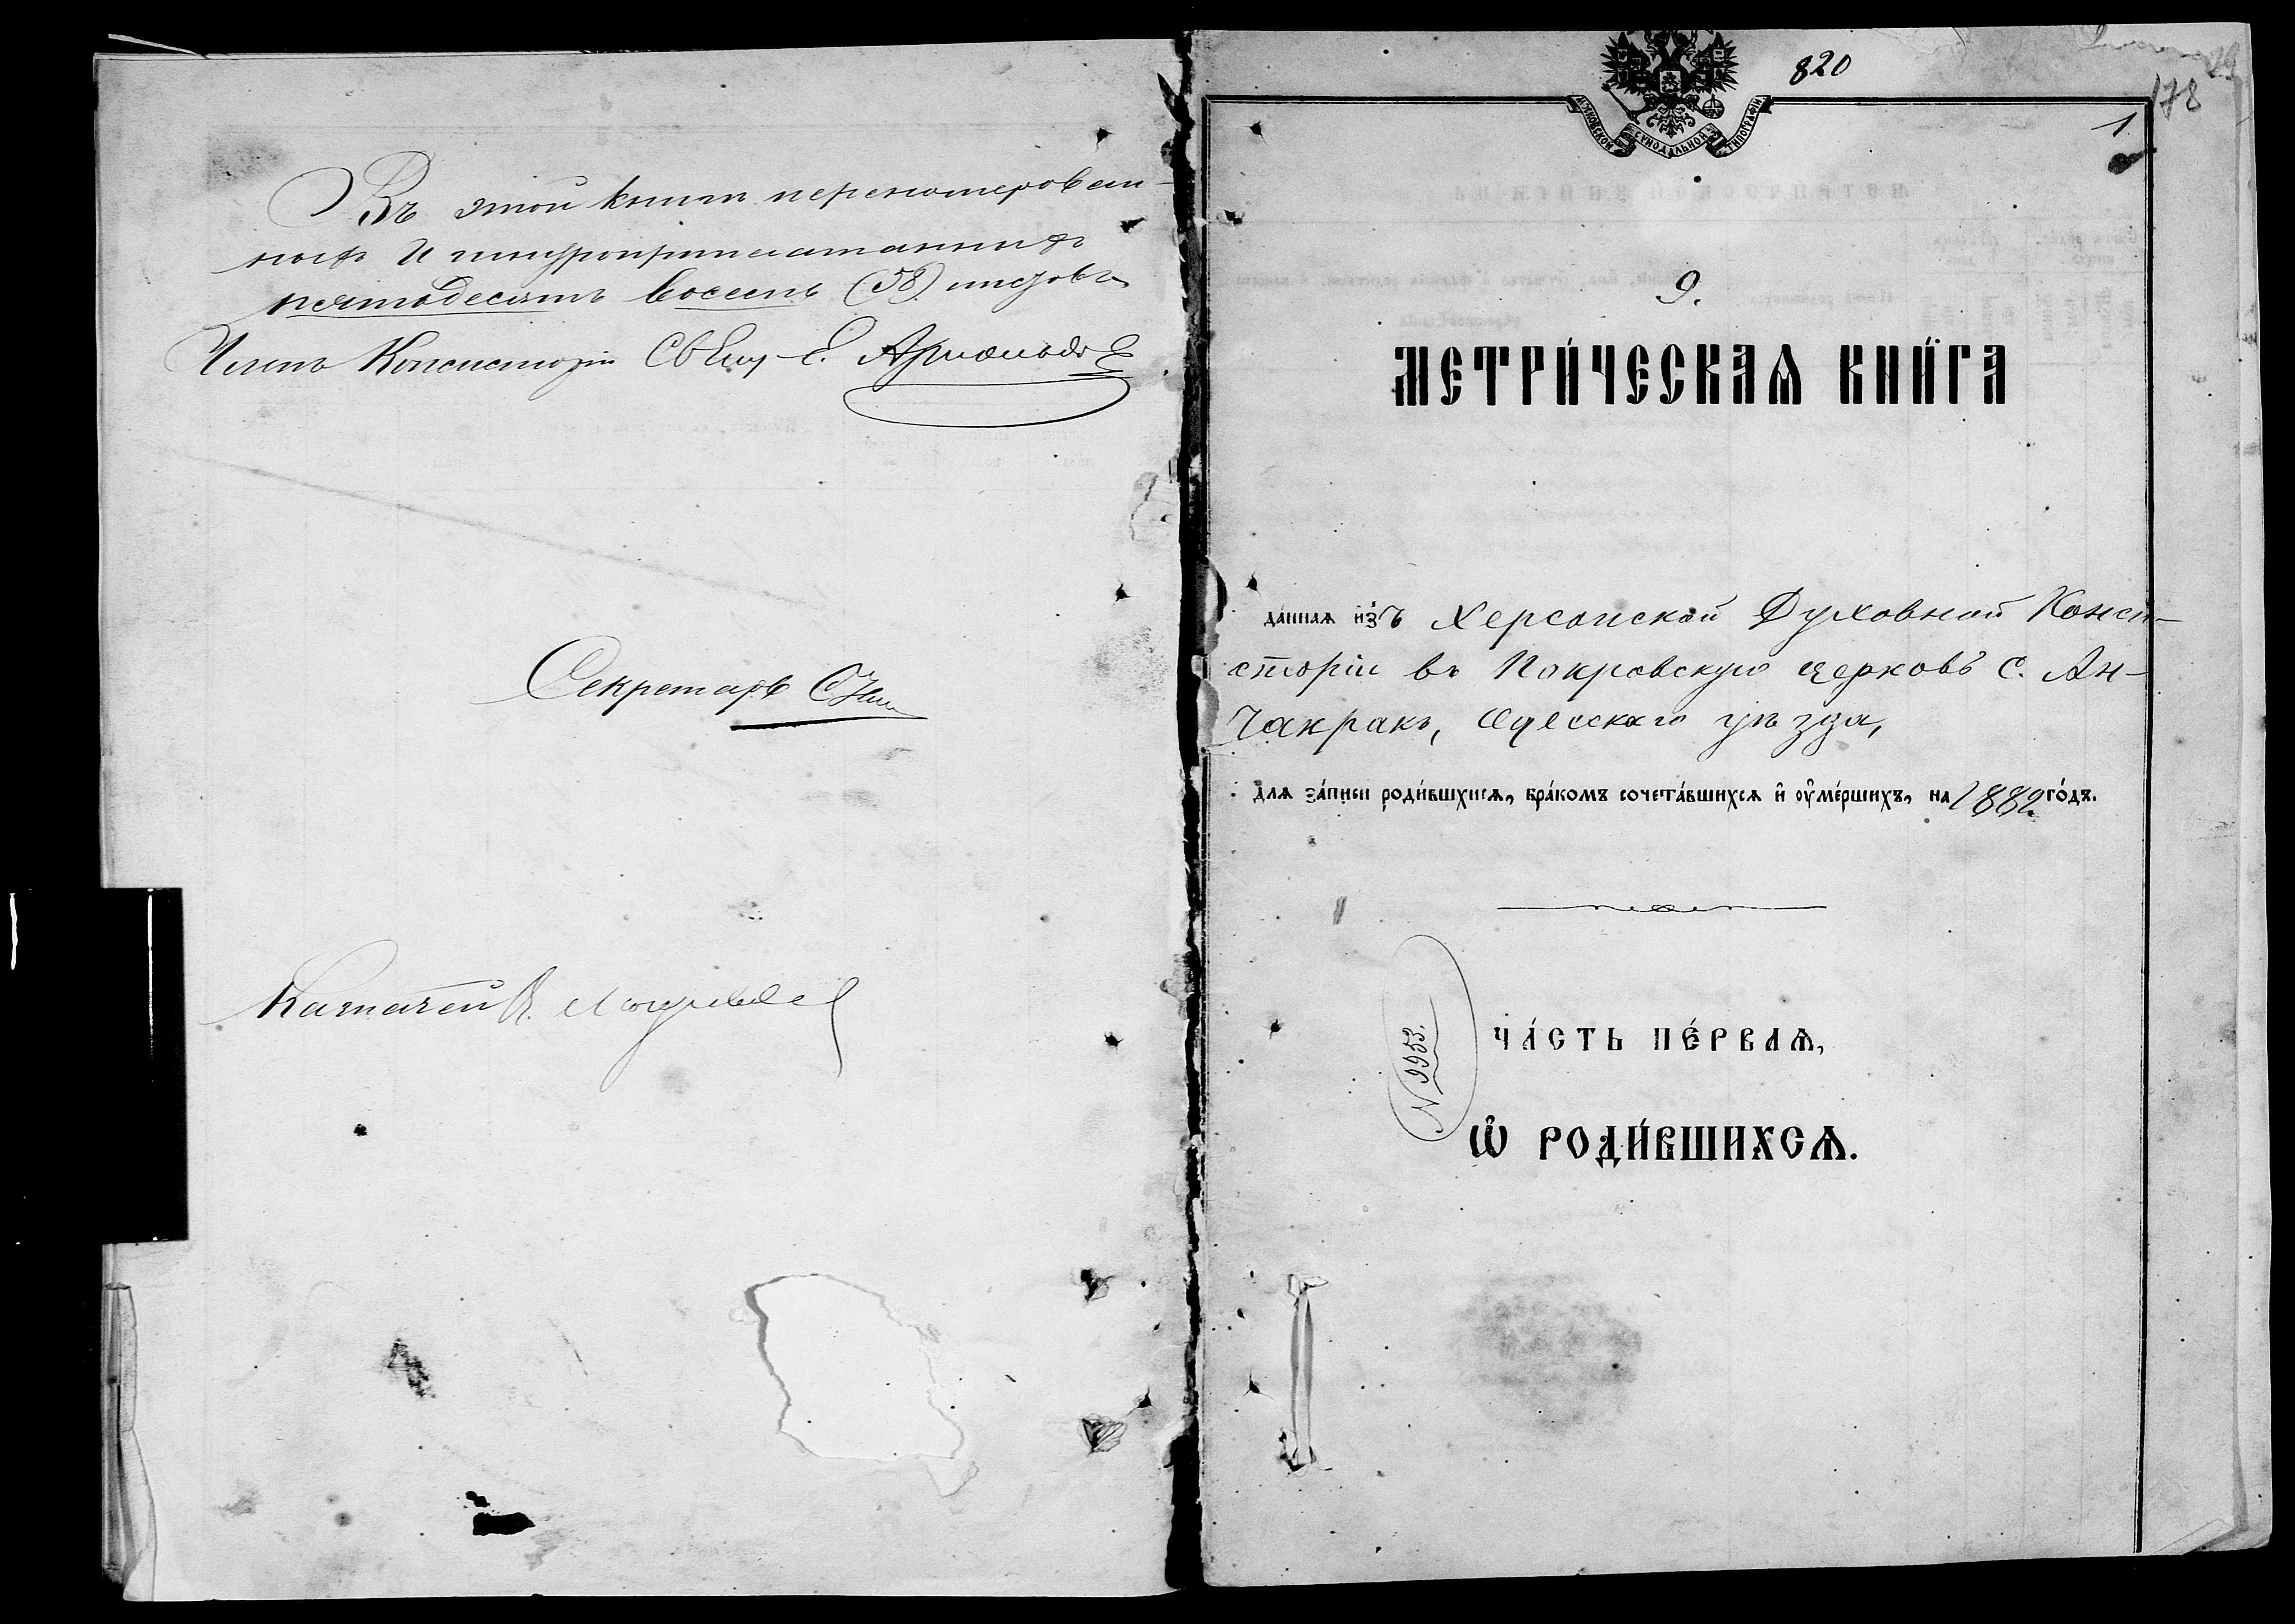 Въ этой книгѣ перенумерован-
ныхъ и шнуроприпечатанныхъ
пятьдесятъ восемь (58) листовъ
Членъ Консисторіи Свящ. Е. Арнольдовъ
Секретарь
Казначей
820
178
1
МОСКОВСКОЙ СѴНОДАЛЬНОЙ ТИПОГРАФІИ
9.
МЕТРИ́ЧЕСКАѦ КНИ́ГА
да́ннаѧ и҆зъ Херсонской Духовной Конси-
сторіи въ Покровскую церковь с. Ан-
чакракъ, Одесскаго уѣзда,
длѧ за́писи роди́вшхисѧ, бра́комъ сочета́вшихсѧ и҆ ᲂу҆ме́ршихъ, на 1882 го́дъ.
N 9953.
ЧА́СТЬ ПЕ́РВАѦ,
Ѡ҆ РОДИ́ВШИХСѦ.